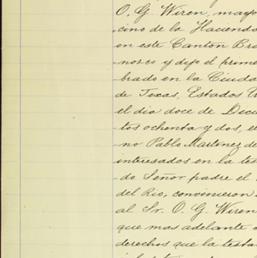 O. G. Wiren, mayo
cino de la Hacienda
en este Canton Bra
nores y dijo el prime
brado en la Ciuda
de Texas, Estados U
el dia doce de Dici
tos ochenta y dos, e
no Pablo Martinez d
interesados en la tes
do Señor padre el
del Rio, convinieron
al Sr. O. G. Wiren
que mas adelante
derechos que la testa